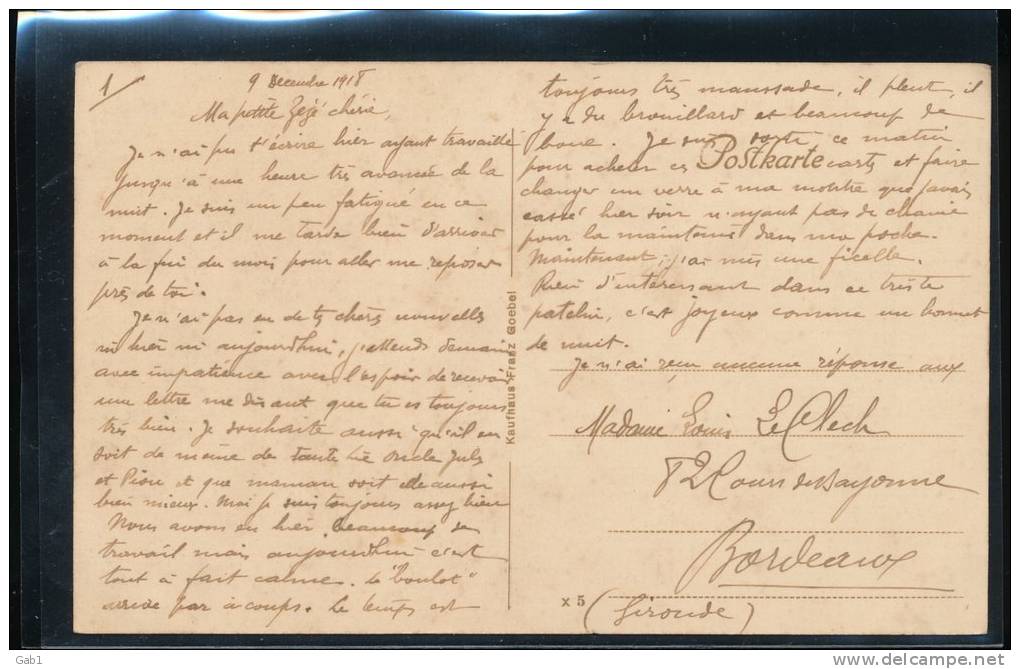 1
9 Decembre 1918
Ma petite Zézé chérie,
Je n'ai pu t'écrire hier ayant travaillé
jusqu'à une heure très avancée de la
nuit. Je suis un peu fatigué en ce
moment et il me tarde bien d'arriver
à la fin du mois pour aller me reposer
près de toi.
Je n'ai pas eu de tes chères nouvelles
ni hier ni aujourdhui, j'attends demain
avec impatience avec l'espoir de recevoir
une lettre me disant que tu es toujours
très bien. Je souhaite aussi qu'il en
soit de même de tante Lie oncle Jules
et Piou et que maman soit elle aussi
bien mieux. Moi je suis toujours assez bien
Nous avons eu hier beaucoup de
travail mais aujourdhui c'est
tout à fait calme. Le "boulot"
arrive par à coups. Le temps est
Kaufhaus Franz Goebel
Postkarte
toujours très maussade, il pleut, il
y a du brouillard et beaucoup de
boue. Je suis sorti ce matin
pour acheter ces cartes et faire
changer un verre à ma montre que j'avais
cassé hier soir n'ayant pas de chaine
pour la maintenir dans ma poche.
Maintenant, j'ai mis une ficelle.
Rien d'intéressant dans ce triste
patelin, c'est joyeux comme un bonnet
de nuit.
Je n'ai reçu aucune réponse aux
Madame Louis Le Clech
82 Cours de Bayonne
Bordeaux
x 5
(Gironde)
Gab1
www.delcampe.net